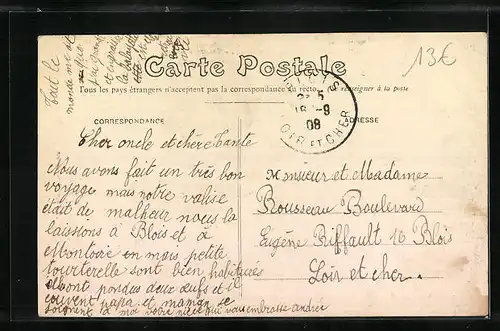 13€
Tout le
monde
Carte Postale
Tous les pays étrangers n'acceptent pas la correspondance au recto, se renseigner à la poste
CORRESPONDANCE
ADRESSE
18-9
08
LOIR ET CHER
Cher oncle et chère Tante
Nous avons fait un très bon
voyage mais notre valise
était de malheur nous la
laissions à Blois et à
Montoire en mais petite
tourterelle sont bien habituées
pondus deux œufs et il
couvent papa et maman se
joignent à moi votre nièce qui vous embrasse andrée
Monsieur et Madame
Rousseau Boulevard
Eugène Riffault 16 Blois
Loir et cher.